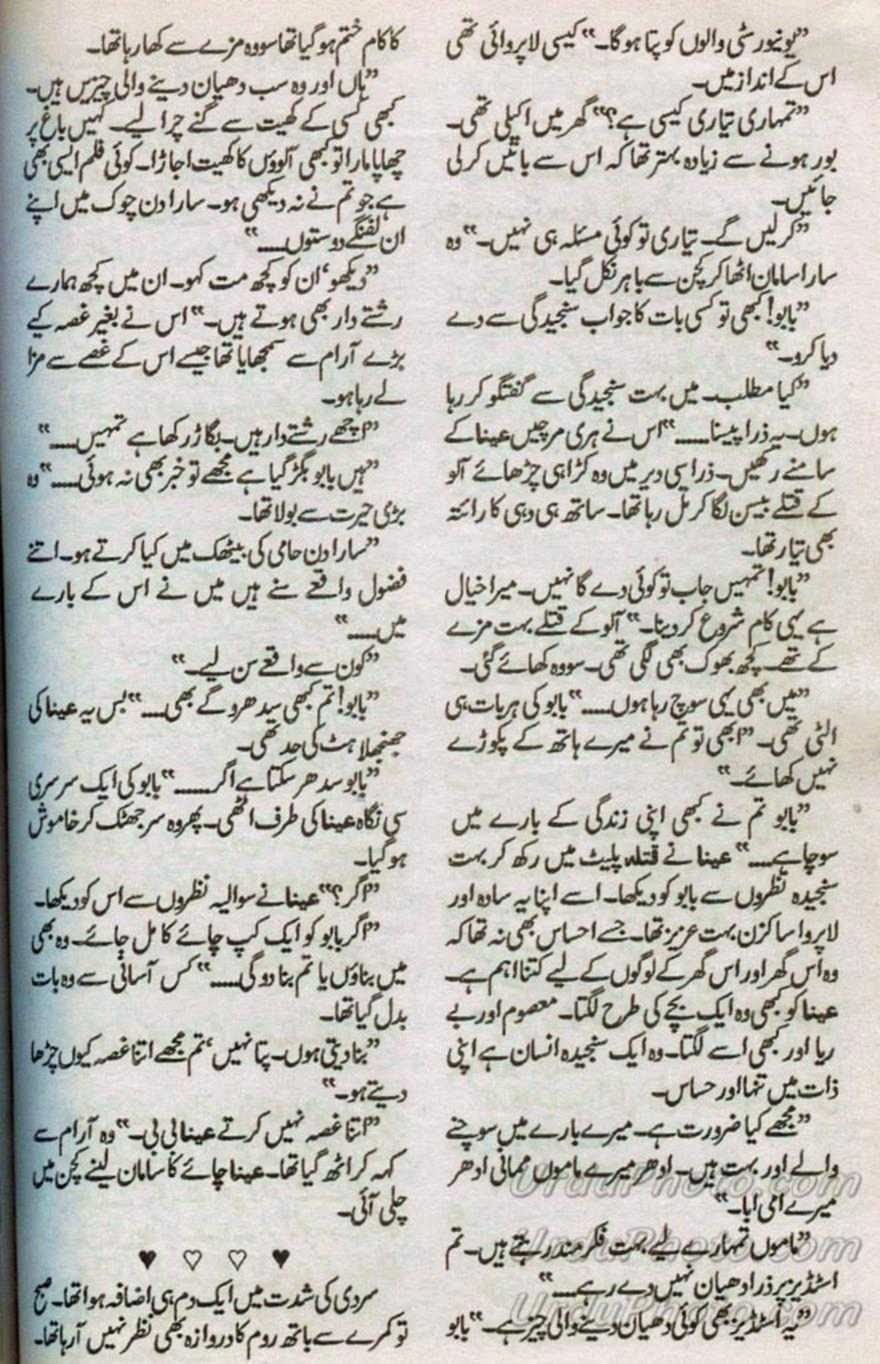 ”یونیورسٹی والوں کو پتا ہوگا۔“ کیسی لاپروائی تھی
اس کے انداز میں۔
”تمہاری تیاری کیسی ہے؟“ گھر میں اکیلی تھی۔
بور ہونے سے زیادہ بہتر تھا کہ اس سے باتیں کرلی
جائیں۔
”کرلیں گے۔ تیاری تو کوئی مسئلہ ہی نہیں۔“ وہ
سارا سامان اٹھا کر کچن سے باہر نکل گیا۔
”بابو! کبھی تو کسی بات کا جواب سنجیدگی سے دے
دیا کرو۔“
”کیا مطلب۔ میں بہت سنجیدگی سے گفتگو کر رہا
ہوں۔ یہ ذرا پیسنا.....“ اس نے ہری مرچیں عینا کے
سامنے رکھیں۔ ذرا سی دیر میں وہ کڑاہی چڑھائے آلو
کے قتلے بیسن لگا کر تل رہا تھا۔ ساتھ ہی دہی کا رائتہ
بھی تیار تھا۔
”بابو! تمہیں جاب تو کوئی دے گا نہیں۔ میرا خیال
ہے یہی کام شروع کردینا۔“ آلو کے قتلے بہت مزے
کے تھے۔ کچھ بھوک بھی لگی تھی۔ سو وہ کھائے گئی۔
”میں بھی یہی سوچ رہا ہوں.....“ بابو کی ہر بات ہی
الٹی تھی۔ ”ابھی تو تم نے میرے ہاتھ کے پکوڑے
نہیں کھائے۔“
”بابو تم نے کبھی اپنی زندگی کے بارے میں
سوچا ہے.....“ عینا نے قتلہ پلیٹ میں رکھ کر بہت
سنجیدہ نظروں سے بابو کو دیکھا۔ اسے اپنا یہ سادہ اور
لاپروا سا کزن بہت عزیز تھا۔ جسے احساس بھی نہ تھا کہ
وہ اس گھر اور اس گھر کے لوگوں کے لیے کتنا اہم ہے۔
عینا کو کبھی وہ ایک بچے کی طرح لگتا۔ معصوم اور بے
ریا اور کبھی اسے لگتا۔ وہ ایک سنجیدہ انسان ہے اپنی
ذات میں تنہا اور حساس۔
”مجھے کیا ضرورت ہے۔ میرے بارے میں سوچنے
والے اور بہت ہیں۔ ادھر میرے ماموں ممانی ادھر
میرے امی ابا۔“
”ماموں تمہارے لیے بہت فکرمند رہتے ہیں۔ تم
اسٹڈیز پر ذرا دھیان نہیں دے رہے.....“
”یہ اسٹڈیز بھی کوئی دھیان دینے والی چیز ہے۔“ بابو
کا کام ختم ہوگیا تھا سو وہ مزے سے کھا رہا تھا۔
”ہاں اور وہ سب دھیان دینے والی چیزیں ہیں۔
کبھی کسی کے کھیت سے گنے چرا لیے۔ کہیں باغ پر
چھاپا مارا تو کبھی آلوؤں کا کھیت اجاڑا۔ کوئی فلم ایسی بھی
ہے جو تم نے نہ دیکھی ہو۔ سارا دن چوک میں اپنے
ان لفنگے دوستوں.....“
”دیکھو، ان کو کچھ مت کہو۔ ان میں کچھ ہمارے
رشتے دار بھی ہوتے ہیں۔“ اس نے بغیر غصہ کیے
بڑے آرام سے سمجھایا تھا جیسے اس کے غصے سے مزا
لے رہا ہو۔
”اچھے رشتے دار ہیں۔ بگاڑ رکھا ہے تمہیں.....“
”ہیں بابو بگڑ گیا ہے مجھے تو خبر بھی نہ ہوئی.....“ وہ
بڑی حیرت سے بولا تھا۔
”سارا دن حامی کی بیٹھک میں کیا کرتے ہو۔ اتنے
فضول واقعے سنے ہیں میں نے اس کے بارے
میں.....“
”کون سے واقعے سن لیے۔“
”بابو! تم کبھی سدھرو گے بھی.....“ بس یہ عینا کی
جھنجلاہٹ کی حد تھی۔
”بابو سدھر سکتا ہے اگر.....“ بابو کی ایک سرسری
سی نگاہ عینا کی طرف اٹھی۔ پھر وہ سر جھٹک کر خاموش
ہوگیا۔
”اگر؟“ عینا نے سوالیہ نظروں سے اس کو دیکھا۔
”اگر بابو کو ایک کپ چائے کا مل جائے۔ وہ بھی
میں بناؤں یا تم بنا دو گی.....“ کس آسانی سے وہ بات
بدل گیا تھا۔
”بنا دیتی ہوں۔ پتا نہیں، تم مجھے اتنا غصہ کیوں چڑھا
دیتے ہو۔“
”اتنا غصہ نہیں کرتے عینا بی بی۔“ وہ آرام سے
کہہ کر اٹھ گیا تھا۔ عینا چائے کا سامان لینے کچن میں
چلی آئی۔
♥ ♡ ♡ ♥
سردی کی شدت میں ایک دم ہی اضافہ ہوا تھا۔ صبح
تو کمرے سے باتھ روم کا دروازہ بھی نظر نہیں آرہا تھا۔
UrduPhoto.com
UrduPhoto.com
UrduPhoto.com